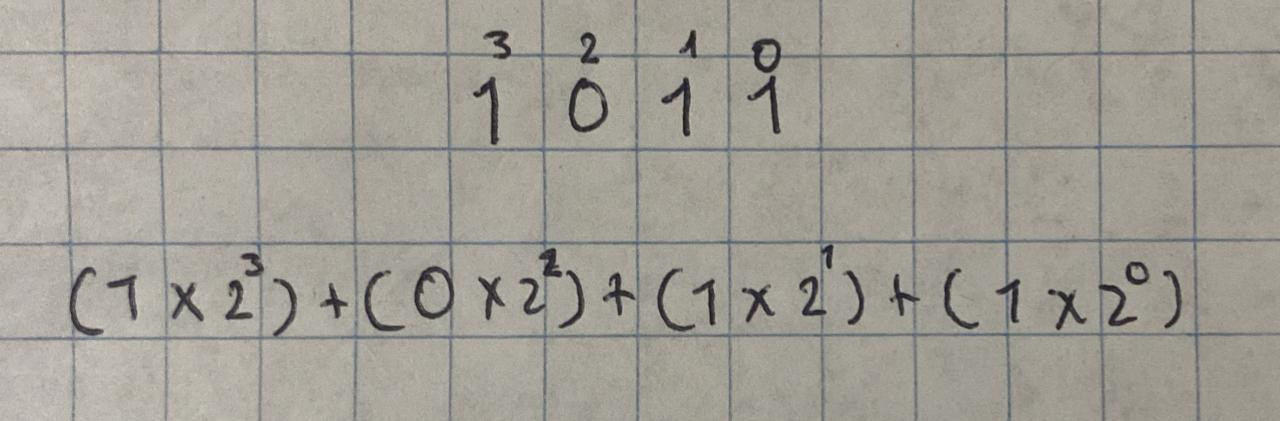 3 2 1 0
1 0 1 1
(1 × 2³) + (0 × 2²) + (1 × 2¹) + (1 × 2⁰)